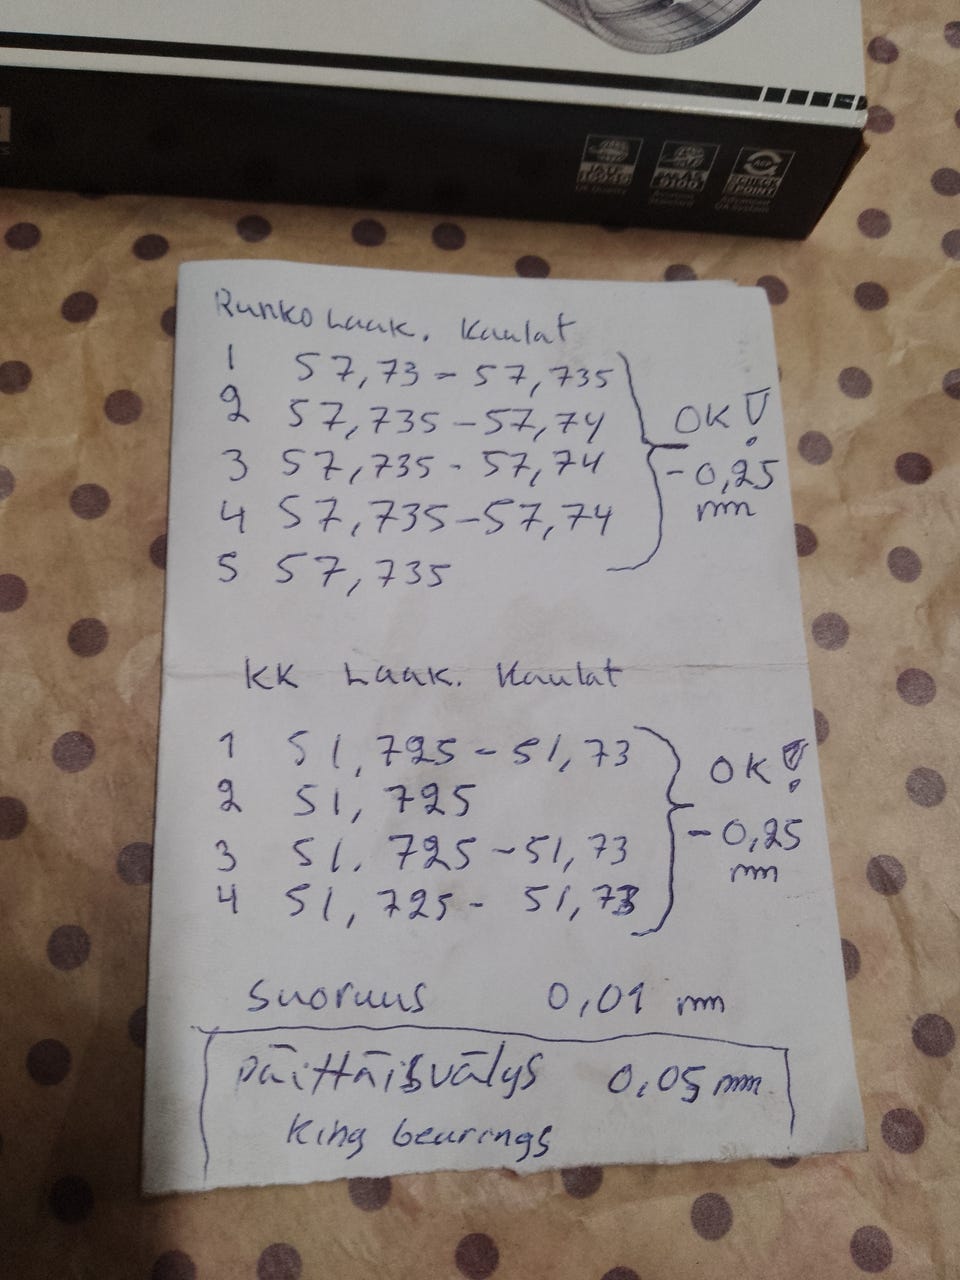 IATF
16949
UK Quality
JAS
9100
Standard
ACP
CHECK
POINT
Advanced
QA System
Runko Laak. Kaulat
1 57,73 - 57,735
2 57,735 - 57,74
3 57,735 - 57,74
4 57,735 - 57,74
5 57,735
OK!
-0,25
mm
KK Laak. Kaulat
1 51,725 - 51,73
2 51,725
3 51.725 - 51,73
4 51,725 - 51,73
OK!
-0,25
mm
Suoruus 0,01 mm
päittäisvälys 0,05 mm
King bearings